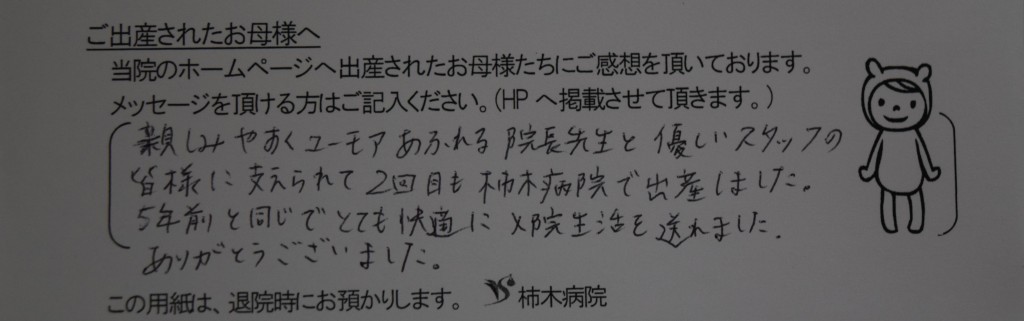 ご出産されたお母様へ
当院のホームページへ出産されたお母様たちにご感想を頂いております。
メッセージを頂ける方はご記入ください。(HPへ掲載させて頂きます。)
親しみやすくユーモアあふれる院長先生と優しいスタッフの
皆様に支えられて2回目も柿木病院で出産しました。
5年前と同じでとても快適に入院生活を送れました。
ありがとうございました。
この用紙は、退院時にお預かりします。 柿木病院